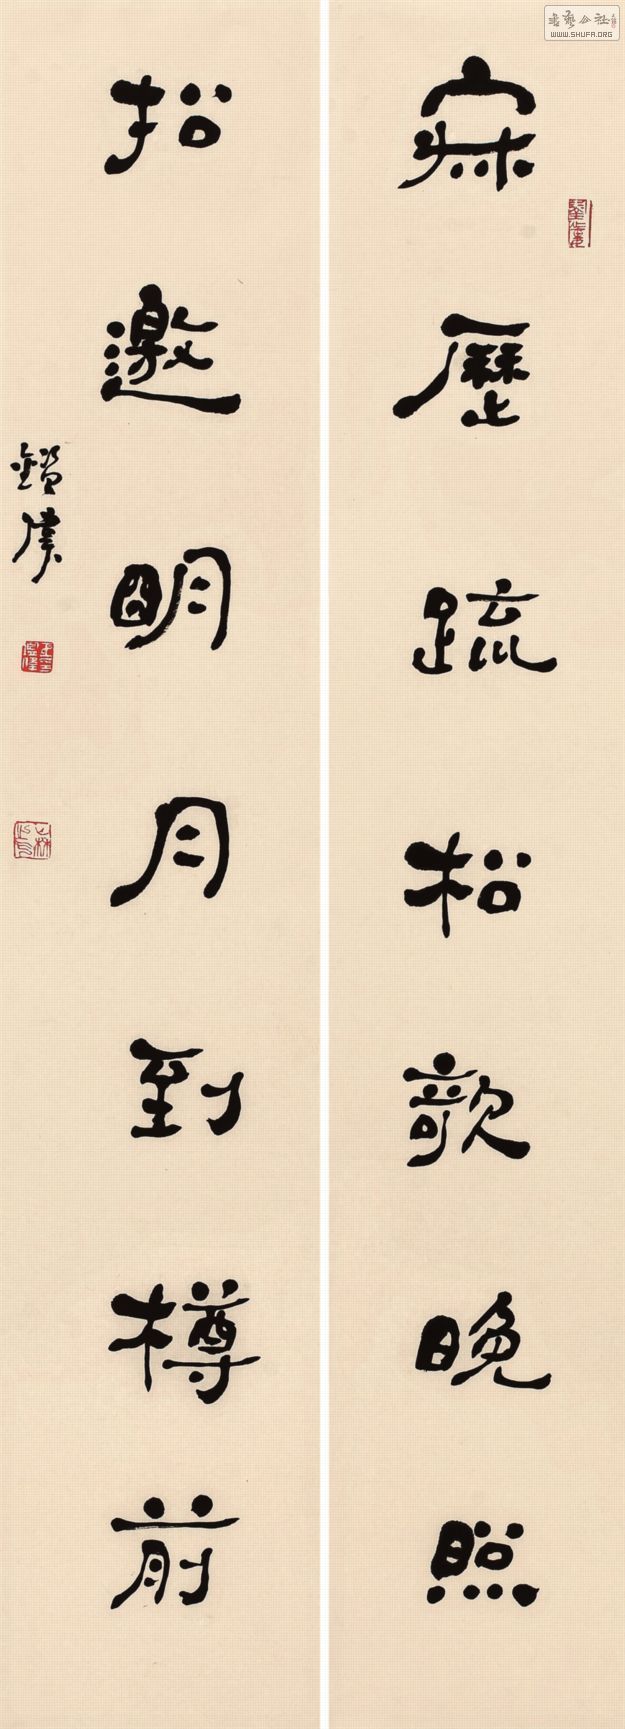 書藝公社
WWW.SHUFA.ORG
寂歷疏松欹晚照
招邀明月到樽前